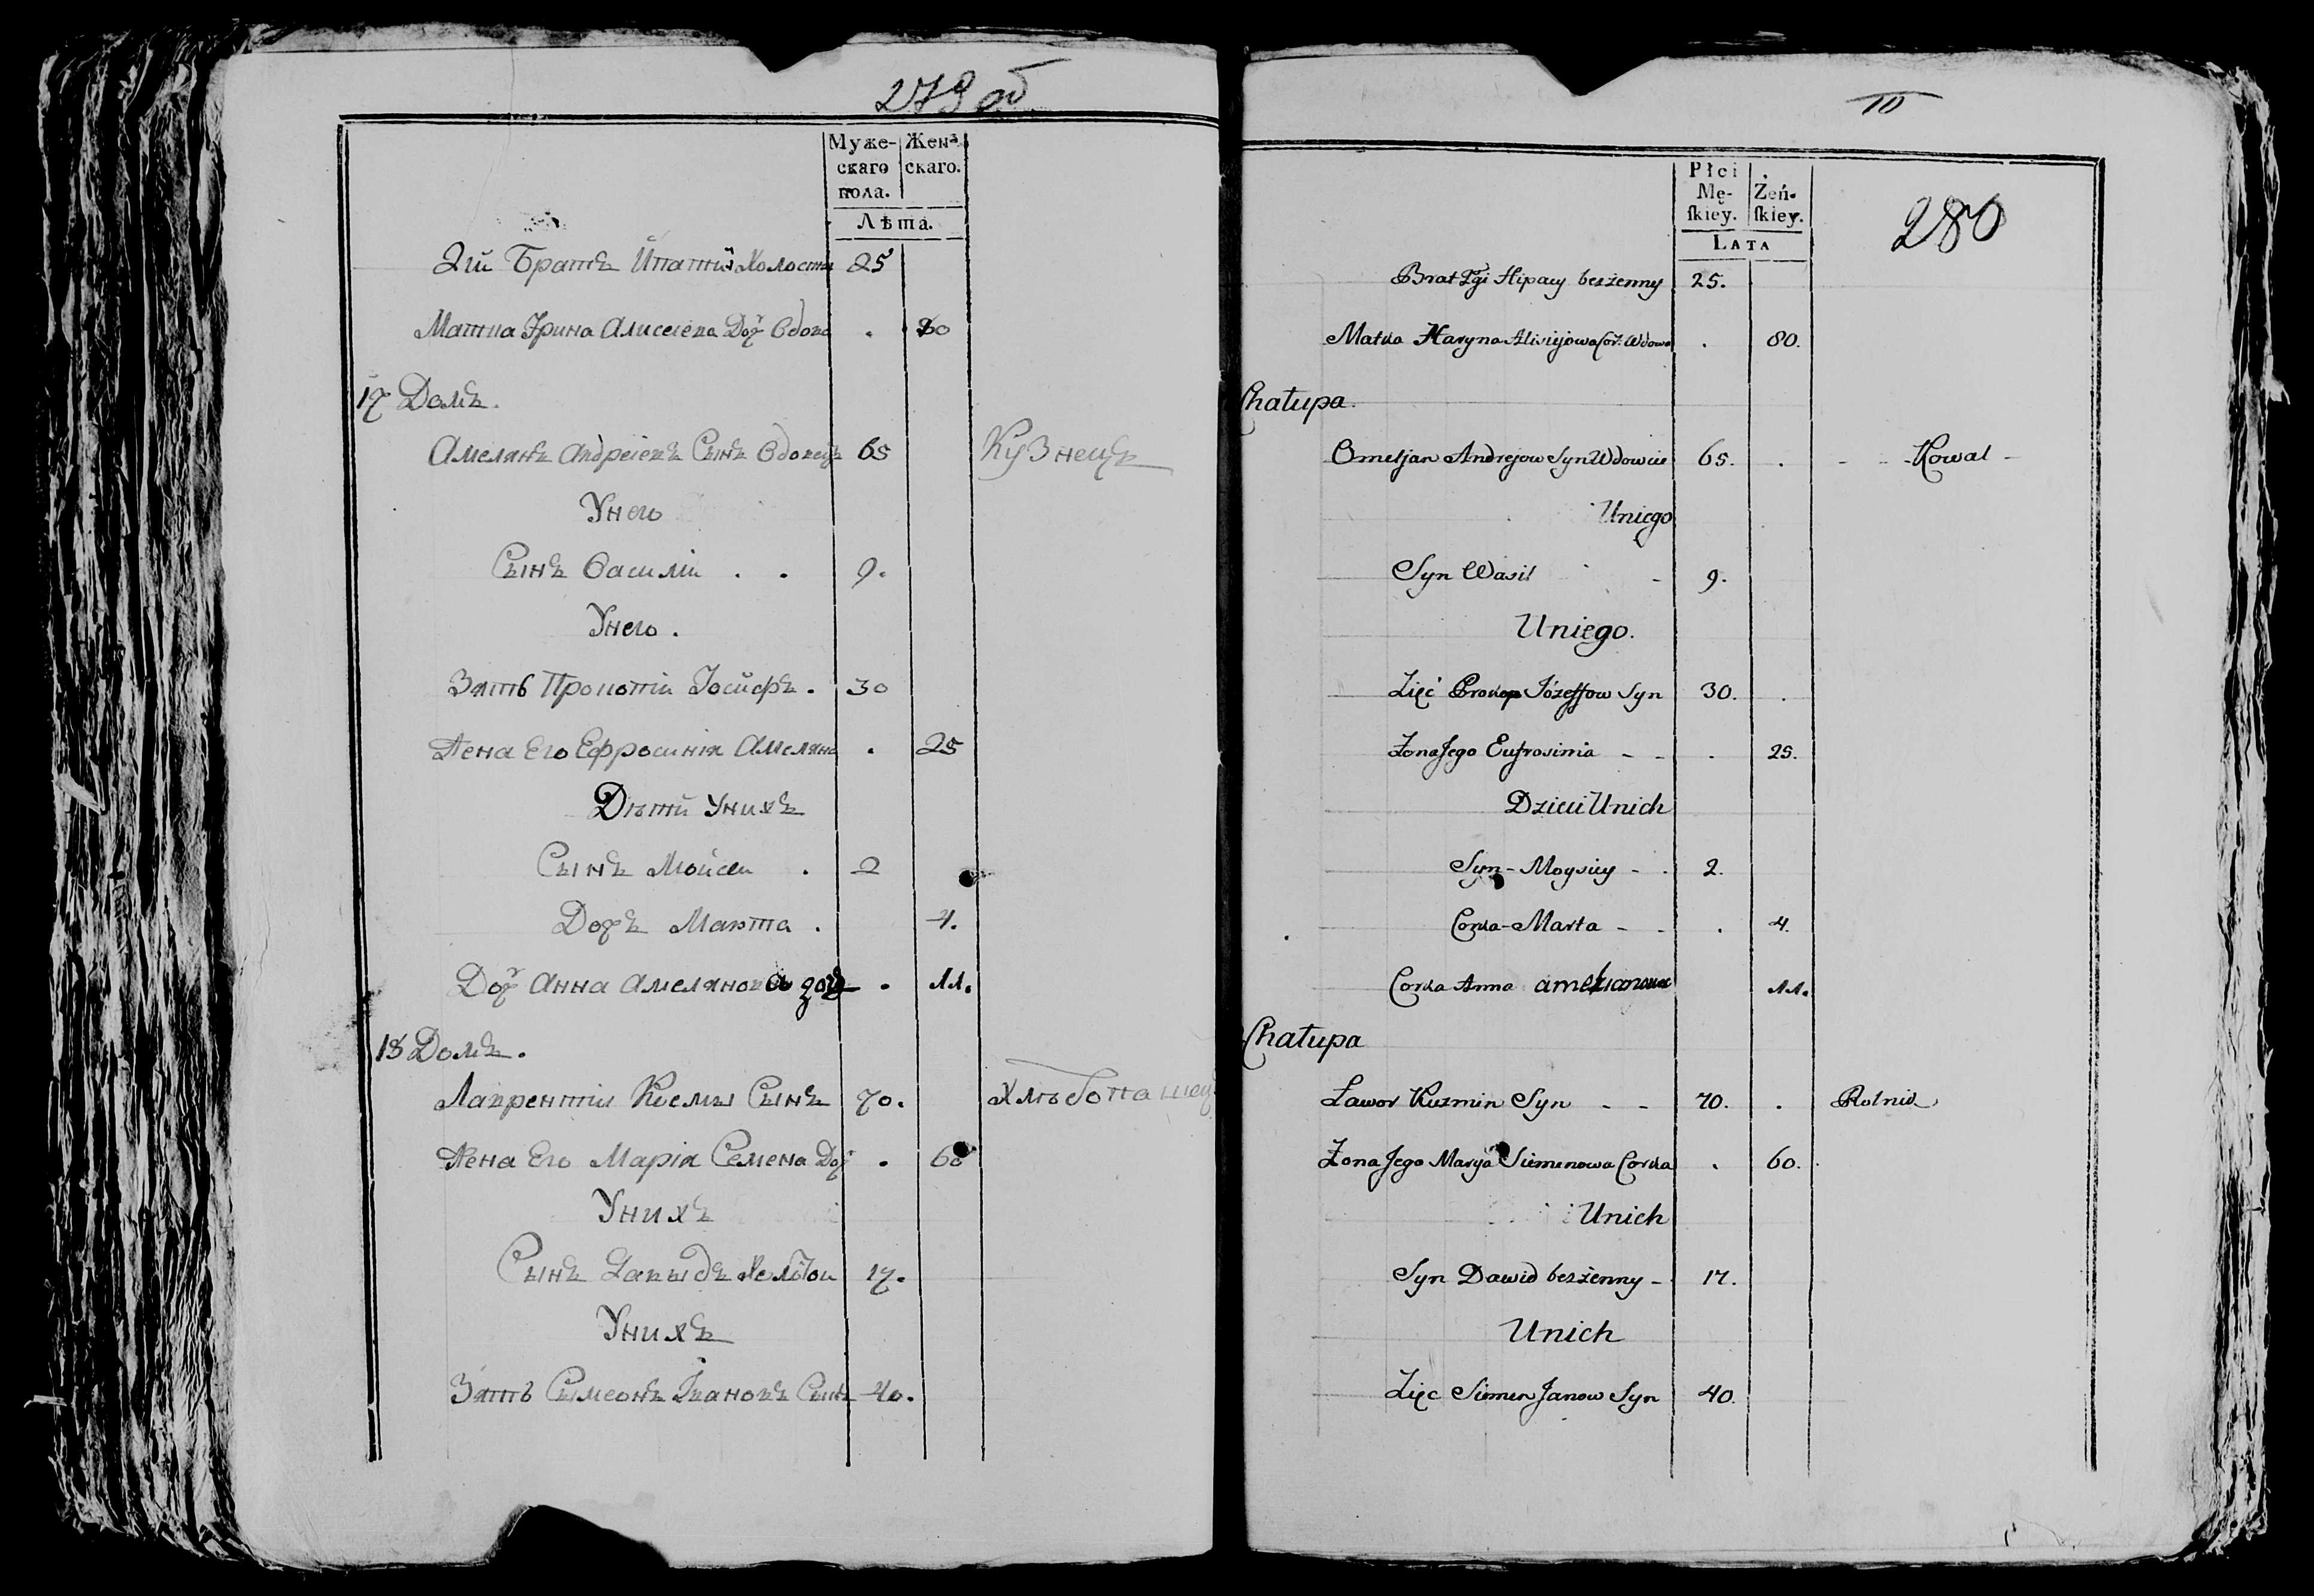 279 об
Муже- Жен-
скаго скаго.
пола.
Лѣта.
2й Братъ Ипатий Холосты 25
Матка Ирина Алисеева Доч Вдова . 80
17 Домъ.
Амелянъ Андреевъ Сынъ Вдовецъ 65 Кузнецъ
Унего
Сынъ Василій . . 9.
Унего .
Зять Прокопій Іосифъ . 30
Жена Его Ефросинія Амеляна . 25
Дѣти Унихъ
Сынъ Мойсей . 2
Дочъ Марта . 4.
Доч Анна Амелянова доч . 11.
18 Домъ.
Лаврентій Космы Сынъ 70. Хлѣбопашец
Жена Его Марія Семена Доч . 60
Унихъ
Сынъ Давыдъ 17.
Унихъ
Зять Сымеонъ Івановъ Сынъ 40.
10
280
Płci
Mę- Żeń-
ſkiey. ſkiey.
LATA
Brat 2gi Hipacy bezżenny 25.
Matka Haryna Alisiejowa Cór. Wdowa . 80.
Chałupa.
Omeljan Andrejow Syn Wdowiec 65. . - - Kowal -
Uniego
Syn Wasil - 9.
Uniego.
Zięć Prokop Józeffow Syn 30. .
Żona Jego Eufrosinia - - . 25.
Dzieci Unich
Syn - Moysiey - . 2.
Corka - Marta - - . 4.
Corka Anna amelianowa 11.
Chałupa
Ławor Kuzmin Syn - - 70. . Rolnik
Żona Jego Marya Siemenowa Corka . 60.
Unich
Syn Dawid bezżenny - 17.
Unich
Zięc Siemen Janow Syn 40.